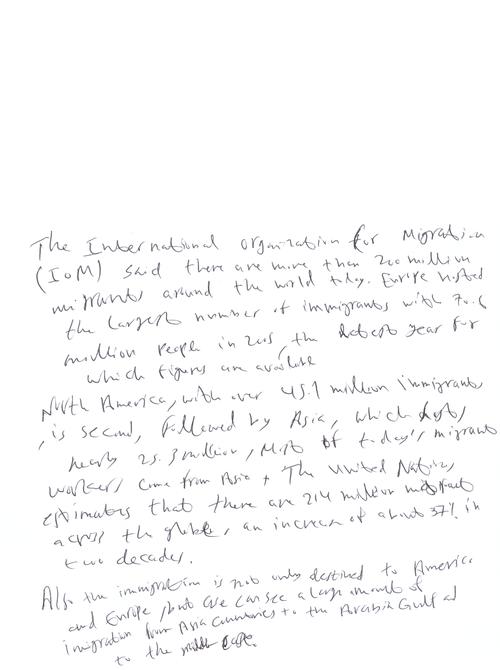 The International organization for Migration
(IOM) said there are more than 200 million
migrants around the world today. Europe hosted
the largest number of immigrants with 70.6
million people in 2005, the latest year for
which figures are available
North America, with over 45.1 million immigrants
, is second, followed by Asia, which hosts
nearly 25.3 million, Most of today's migrant
workers come from Asia + The United Nations
estimates that there are 214 million
across the globe, an increase of about 37% in
two decades.
Also the immigration is not only destined to America
and Europe, but we can see a large amount of
imigration from Asia Countries to the Arabia Gulf ad
to the middle east.